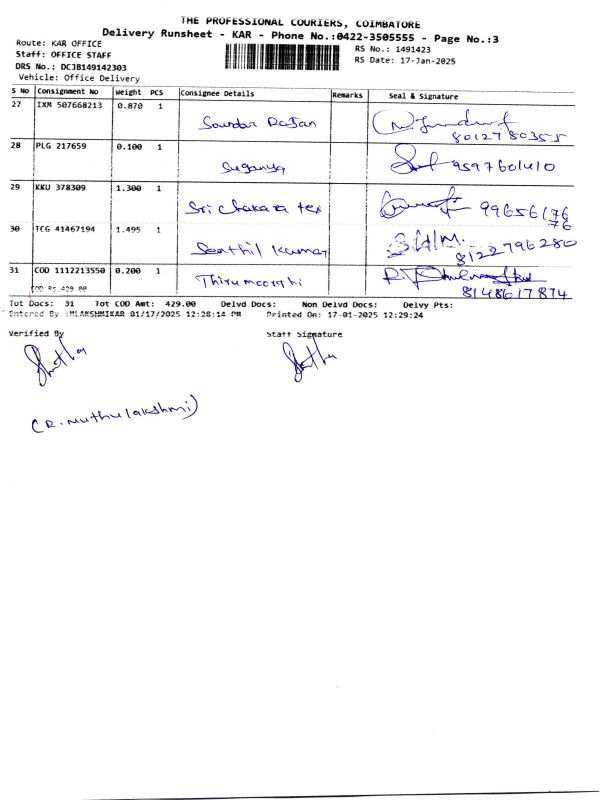 THE PROFESSIONAL COURIERS, COIMBATORE
Delivery Runsheet - KAR - Phone No.:0422-3505555 - Page No.:3
Route: KAR OFFICE
Staff: OFFICE STAFF
DRS No.: DCJB149142303
Vehicle: Office Delivery
RS No.: 1491423
RS Date: 17-Jan-2025
S No Consignment No Weight PCS Consignee Details Remarks Seal & Signature
27 IXM 507668213 0.870 1
Soundar Rajan 8012780355
28 PLG 217659 0.100 1
Suganya 9597601410
29 KKU 378309 1.300 1
Sri Chakara tex 9965617676
76
30 TCG 41467194 1.495 1
Senthil kumar 8122796280
31 COD 1112213550 0.200 1
COD Rs.429.00
Thirumoorthi 8148617874
Tot Docs: 31 Tot COD Amt: 429.00 Delvd Docs: Non Delvd Docs: Delvy Pts:
Entered By :MLAKSHMIKAR 01/17/2025 12:28:14 PM Printed On: 17-01-2025 12:29:24
Verified By Staff Signature
(R. Muthulakshmi)